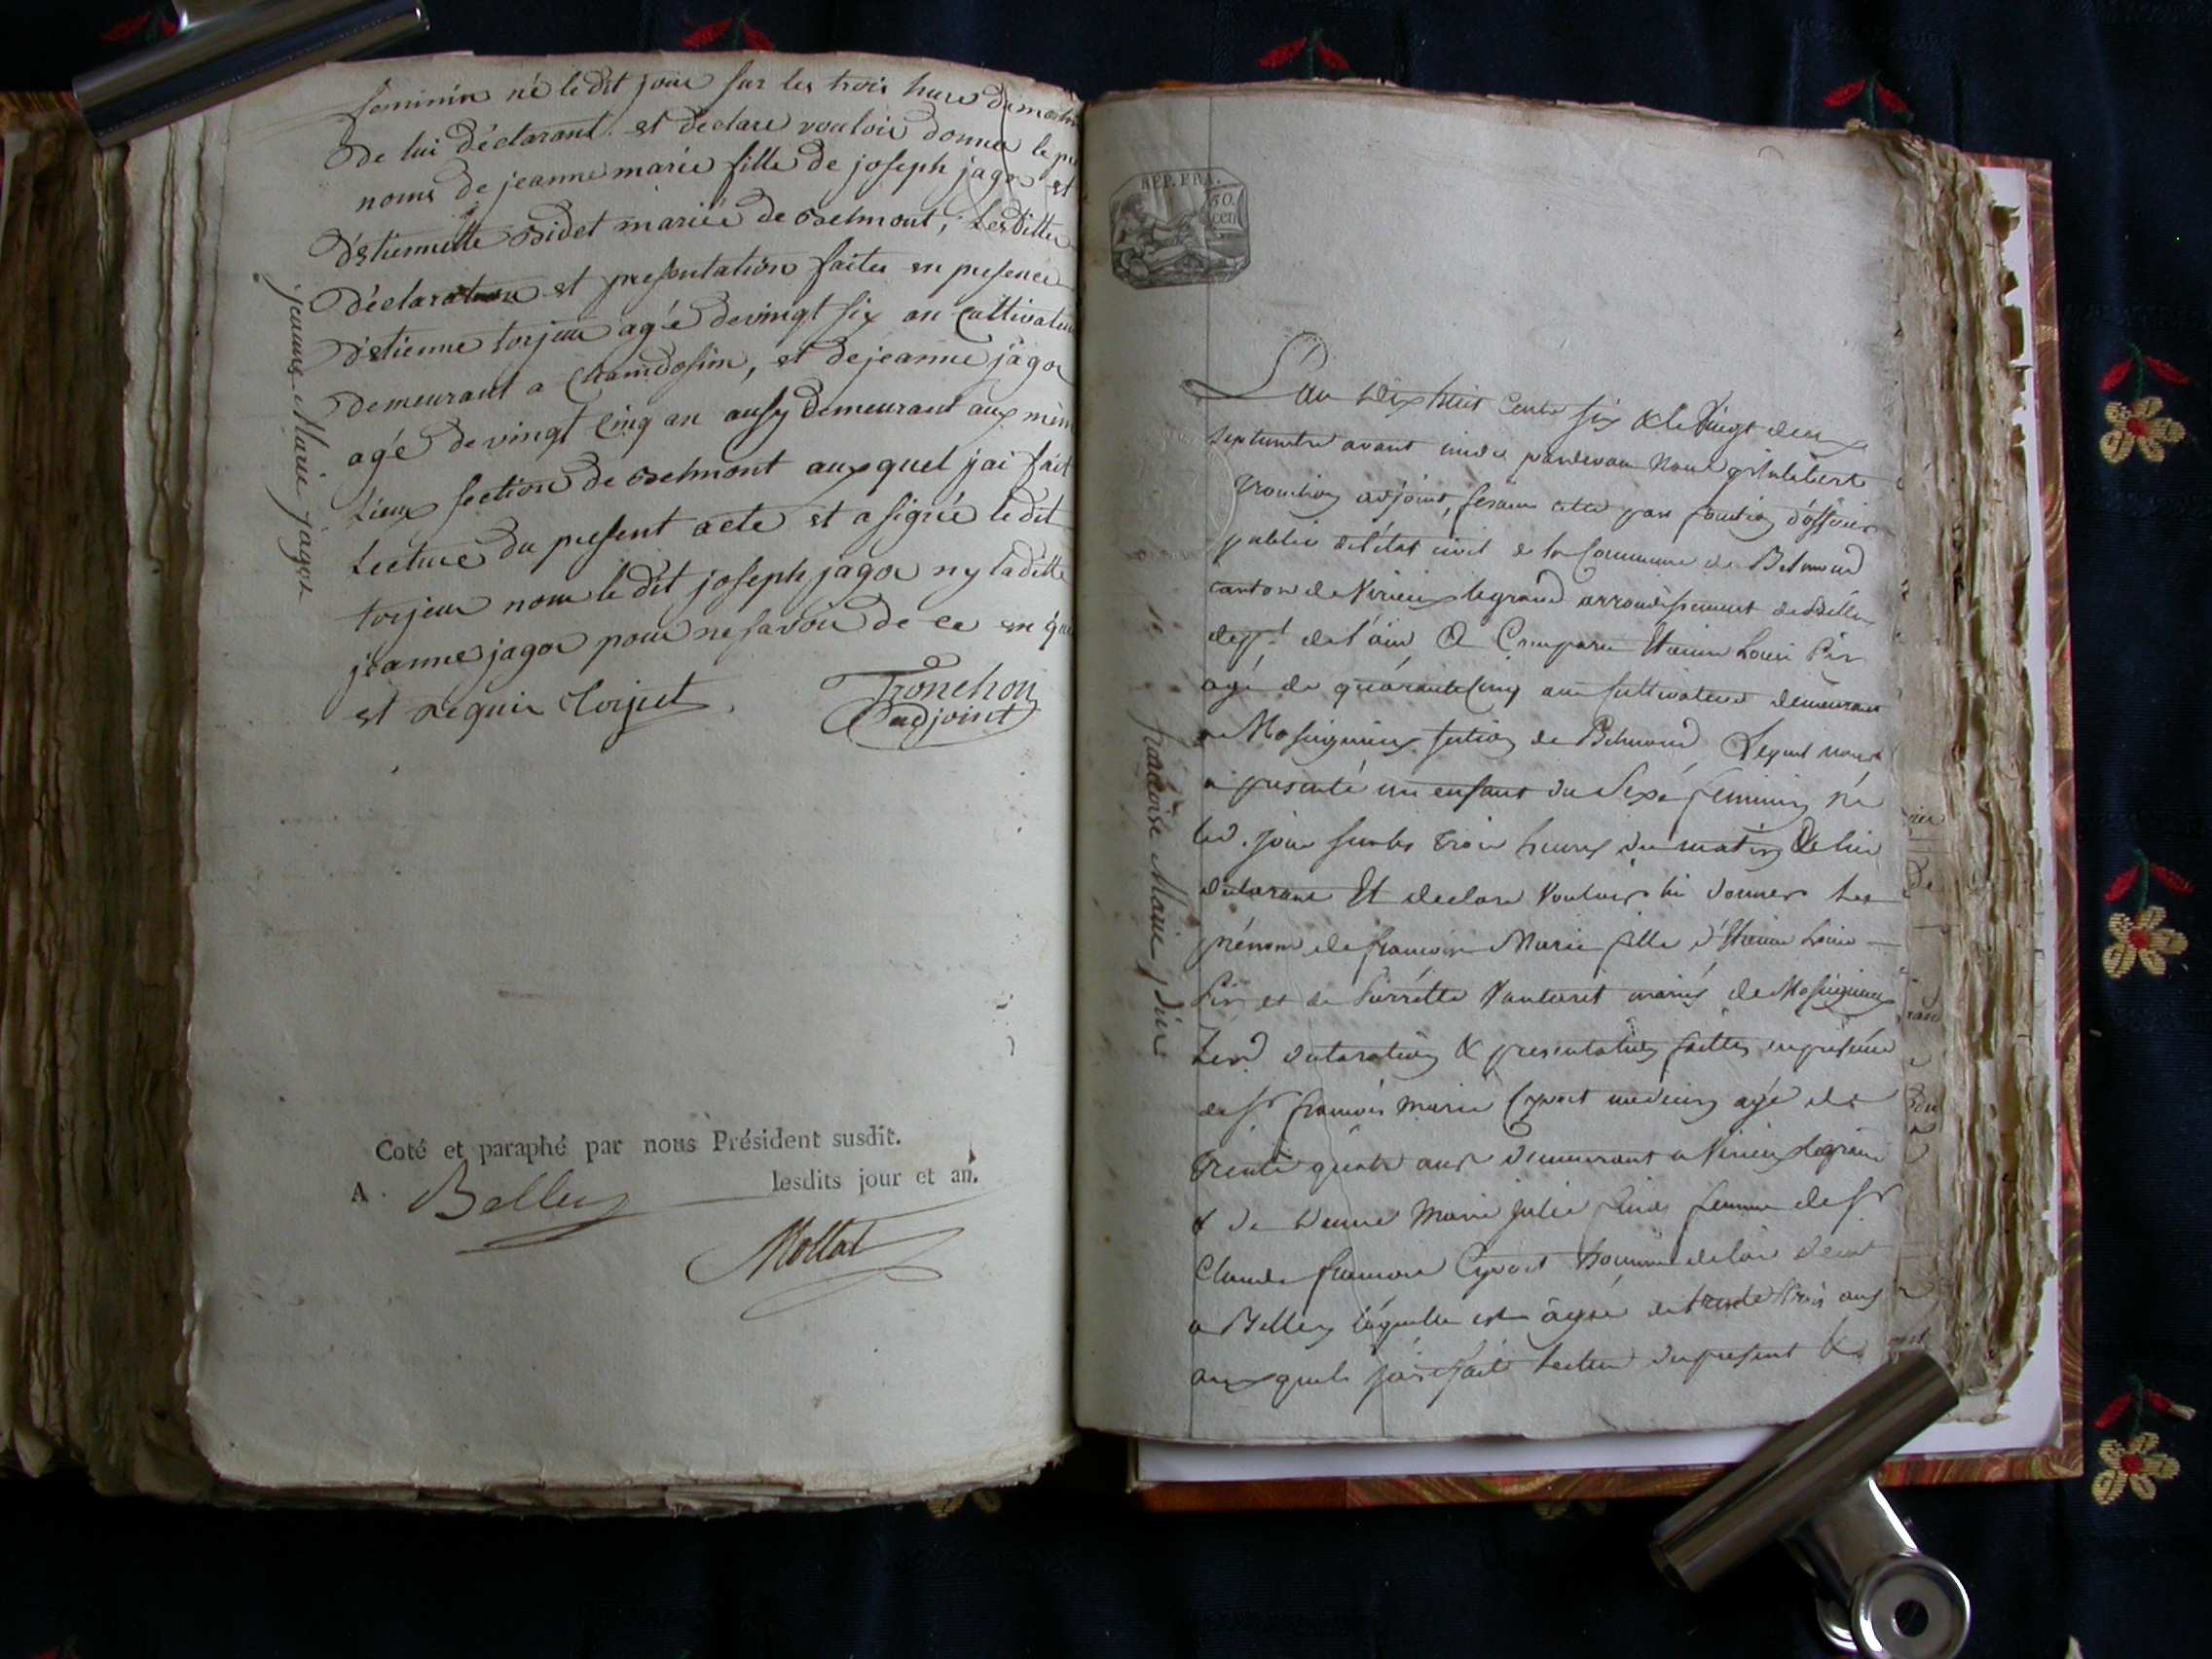 feminin né ledit jour sur les trois hure du matin
de lui déclarant. et declare vouloir donner le pre
noms de jeanne marie fille de joseph jagor et
d'étiennette Bidet mariée de Belmont, Lesditte
déclaration et presentation faites en presence
d'étienne torjeur agé de vingt six an Cultivateur
demeurant a Chamdosin, et de jeanne jagor
agé de vingt cinq an ausy demeurant aux mème
Lieux section de Belmont auxquel j'ai fait
Lecture du present acte et a signé le dit
torjeur nom le dit joseph jagor ny laditte
jeanne jagor pour ne savoir de ce en que
et requis torjeut
Tronchon
adjoint
jeanne Marie jagor
Coté et paraphé par nous Président susdit.
A Belley lesdits jour et an.
Mollat
REP. FRA.
50.
cen
L'an dix huit cents six & le vingt deux
septembre avant midi pardevan nous
Tronchon adjoint, fesant cette par fonction d'officier
public de l'état civil de la Commune de Belmond
canton de Virieu legrand arrondissement de Belley
dept. de l'ain Est Comparu Etienne Louis
agé de quarante cinq ans Cultivateur demeurant
a section de Belmond Lequel nous
a presenté un enfant du Sexe feminin né
led. jour sur les trois heures du matin de lui
déclarant Et declare Vouloir lui donner les
prénoms de francoise Marie fille d'Etienne Louis
et de Pierrette Vanteret mariés de
Lesd déclaration & presentation faittes en presence
de Sr francois marie Cyvoct medecin agé de
trente quatre ans demeurant a Virieu legrand
& de Dame Marie julie femme de Sr
Claude francois Cyvoct homme de loi demt
a Belley laquelle est âgée de trente trois ans
auxquels j'ai fait lecture du present &
francoise Marie